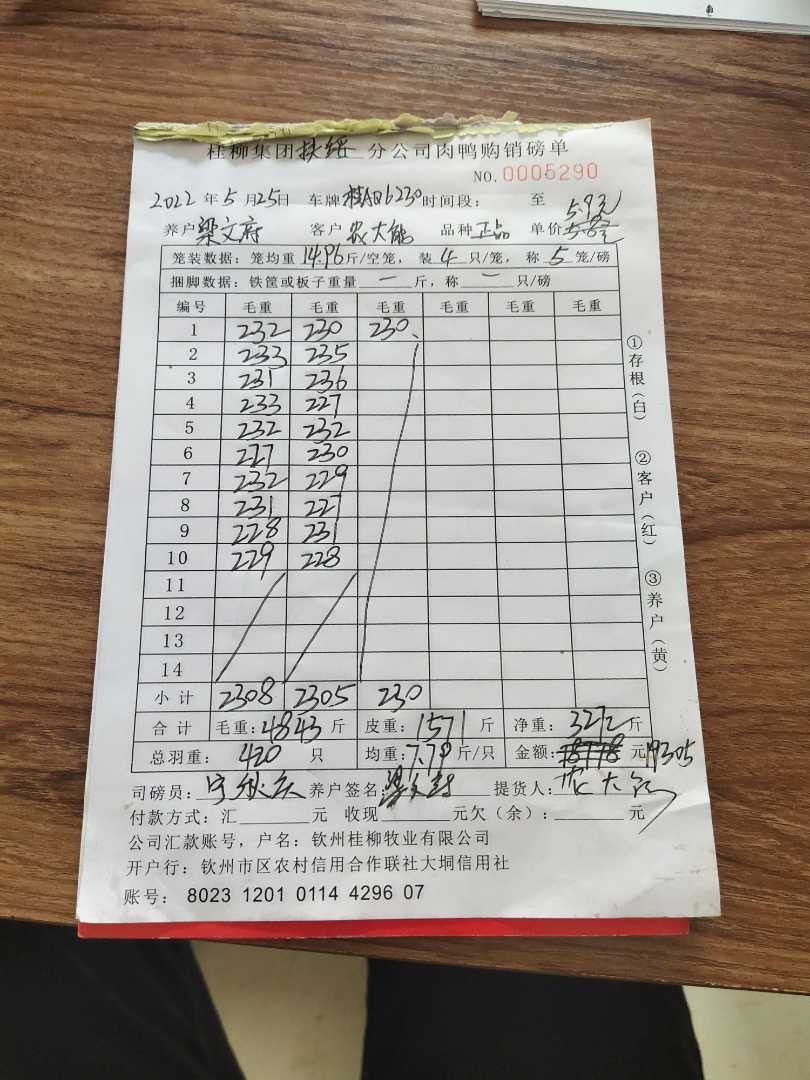 桂柳集团扶绥分公司肉鸭购销磅单
NO.0005290
2022年5月25日 车牌桂AD6230时间段： 至 5.9元
养户梁文府 客户农大能 品种正品 单价
笼装数据：笼均重14.96斤/空笼，装4只/笼，称5笼/磅
捆脚数据：铁筐或板子重量一斤，称一只/磅
编号 毛重 毛重 毛重 毛重 毛重 毛重
1 232 230 230
2 233 235
3 231 236
4 233 227
5 232 232
6 227 230
7 232 229
8 231 227
9 228 231
10 229 228
11
12
13
14
小计 2308 2305 230
合计 毛重：4843斤 皮重：1571斤 净重：3272斤
总羽重：420只 均重：7.79斤/只 金额：元 19305
司磅员： 养户签名：梁文府 提货人：农大能
付款方式：汇元 收现元欠（余）：元
公司汇款账号，户名：钦州桂柳牧业有限公司
开户行：钦州市区农村信用合作联社大垌信用社
账号：8023 1201 0114 4296 07
①存根（白）
②客户（红）
③养户（黄）